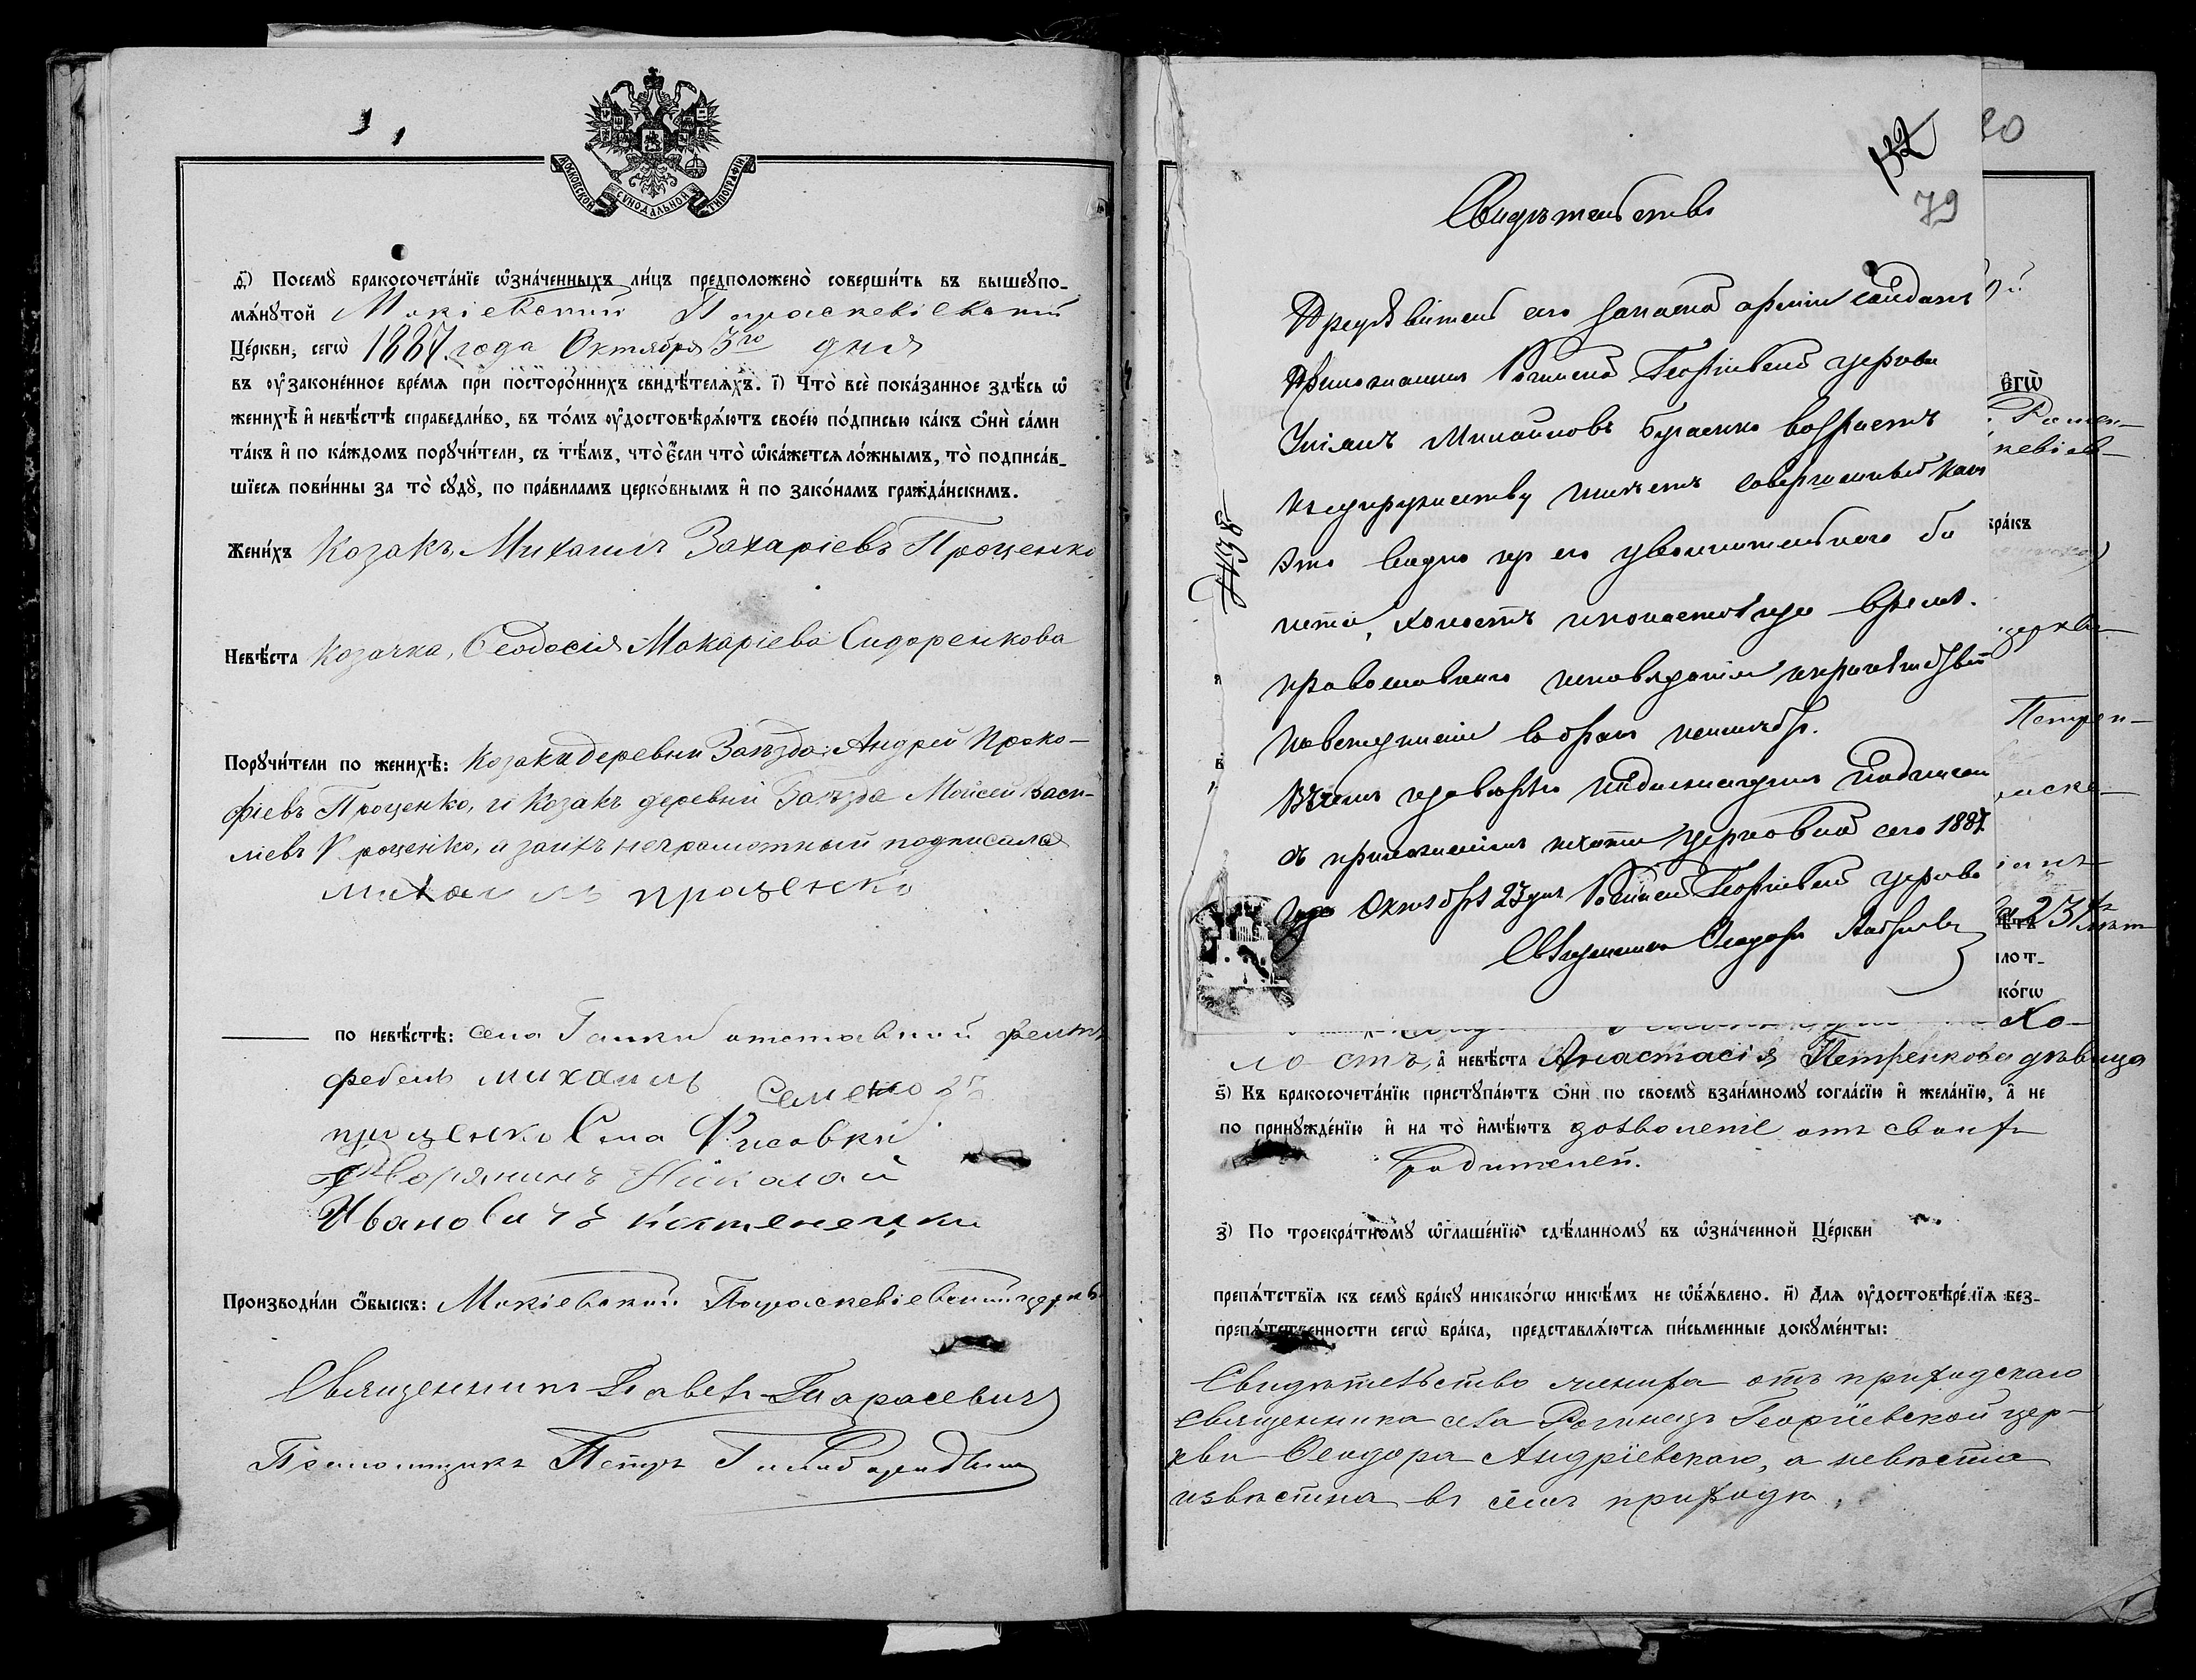 МОСКОВСКОЙ СѴНОДАЛЬНОЙ ТИПОГРАФІИ
д҃) Посемꙋ̀ бракосочета́нїе ѡ҆зна́ченныхъ ли́цъ предположено̀ соверши́ть въ вышеꙋпо-
мѧ́нꙋтой Макіевской Параскевіевской
Це́ркви, сегѡ̀ 1887 года Октября 3го дня
въ ᲂу҆зако́ненное вре́мѧ при посторо́ннихъ свидѣ́телѧхъ. і҃) Что̀ всѐ пока́занное здѣ́сь ѡ҆
женихѣ̀ и҆ невѣ́стѣ справедли́во, въ то́мъ ᲂу҆достовѣрѧ́ютъ свое́ю по́дписью ка́къ ѻ҆нѝ са́ми
та́къ и҆ по ка́ждомъ порꙋчи́тели, съ тѣ́мъ, что̀ є҆́сли что̀ ѡ҆ка́жетсѧ ло́жнымъ, то̀ подписа́в-
шїесѧ пови́нны за то̀ сꙋдꙋ̀, по пра́виламъ церко́внымъ и҆ по зако́намъ гражда́нскимъ.
Жени́хъ Козакъ, Михаилъ Захаріевъ Проценко
Невѣ́ста Козачка, Ѳеодосія Макаріева Сидоренкова
Порꙋчи́тели по женихѣ̀: Козака деревни Заѣзда: Андрей Проко-
фіевъ Проценко, и Козакъ деревни Заѣзда Моисей Васи-
ліевъ Проценко, а за ихъ неграмотный подписался
михаилъ проценко
по невѣ́стѣ: села Галки отставний фелть
фебель михаилъ
проценко Села Фисовки
Дворянинъ Николай
Ивановичъ Костенецки
Производи́ли ѻ҆́быскъ: Макіевской Параскевіевской церкв
Священникъ Павелъ Тарасевичъ
Псаломщикъ Петръ
80
132
79
Свидѣтельство
Предъявитель сего запасной арміи солдатъ
Прихожанинъ Рогинской Георгіевской церкви
Михайловъ возрастъ
къ супружеству имѣетъ совершенный какъ
это видно изъ его увольнительного би
лета, холостъ
православнаго исповѣданія
Въ чемъ
съ приложеніемъ печати церковной сего 1887
года Октября 23 дня Рогинской Георгіевской церкви
Священникъ Ѳеодоръ
є҆гѡ̀
Ромен-
кевіев-
бра́къ
церкви
Петрен-
раске-
23
лот-
ко́гѡ
Хо-
лостъ, а҆ невѣ́ста Анастасія Петренкова дѣвица
ѕ҃) Къ бракосочета́нїю пристꙋпа́ютъ ѻ҆нѝ по своемꙋ̀ взаи́мномꙋ согла́сїю и҆ жела́нїю, а҆ не
по принꙋжде́нїю и҆ на то̀ и҆мѣ́ютъ дозволеніе отъ своихъ
родителей.
з҃) По троекра́тномꙋ ѡ҆глаше́нїю сдѣ́ланномꙋ въ ѡ҆зна́ченной Це́ркви
препѧ́тствїѧ къ семꙋ̀ бра́кꙋ никако́гѡ никѣ́мъ не ѡ҆б̾ѧ́влено. и҃) Длѧ ᲂу҆достовѣре́нїѧ без-
препѧ́тственности сегѡ̀ бра́ка, представлѧ́ютсѧ пи́сьменные докꙋме́нты:
Свидѣтельство жениха отъ приходскаго
священника села Рогинецъ Георгіевской цер-
кви Ѳеодора Андріевскаго, а невѣста
извѣстна въ семъ приходѣ.